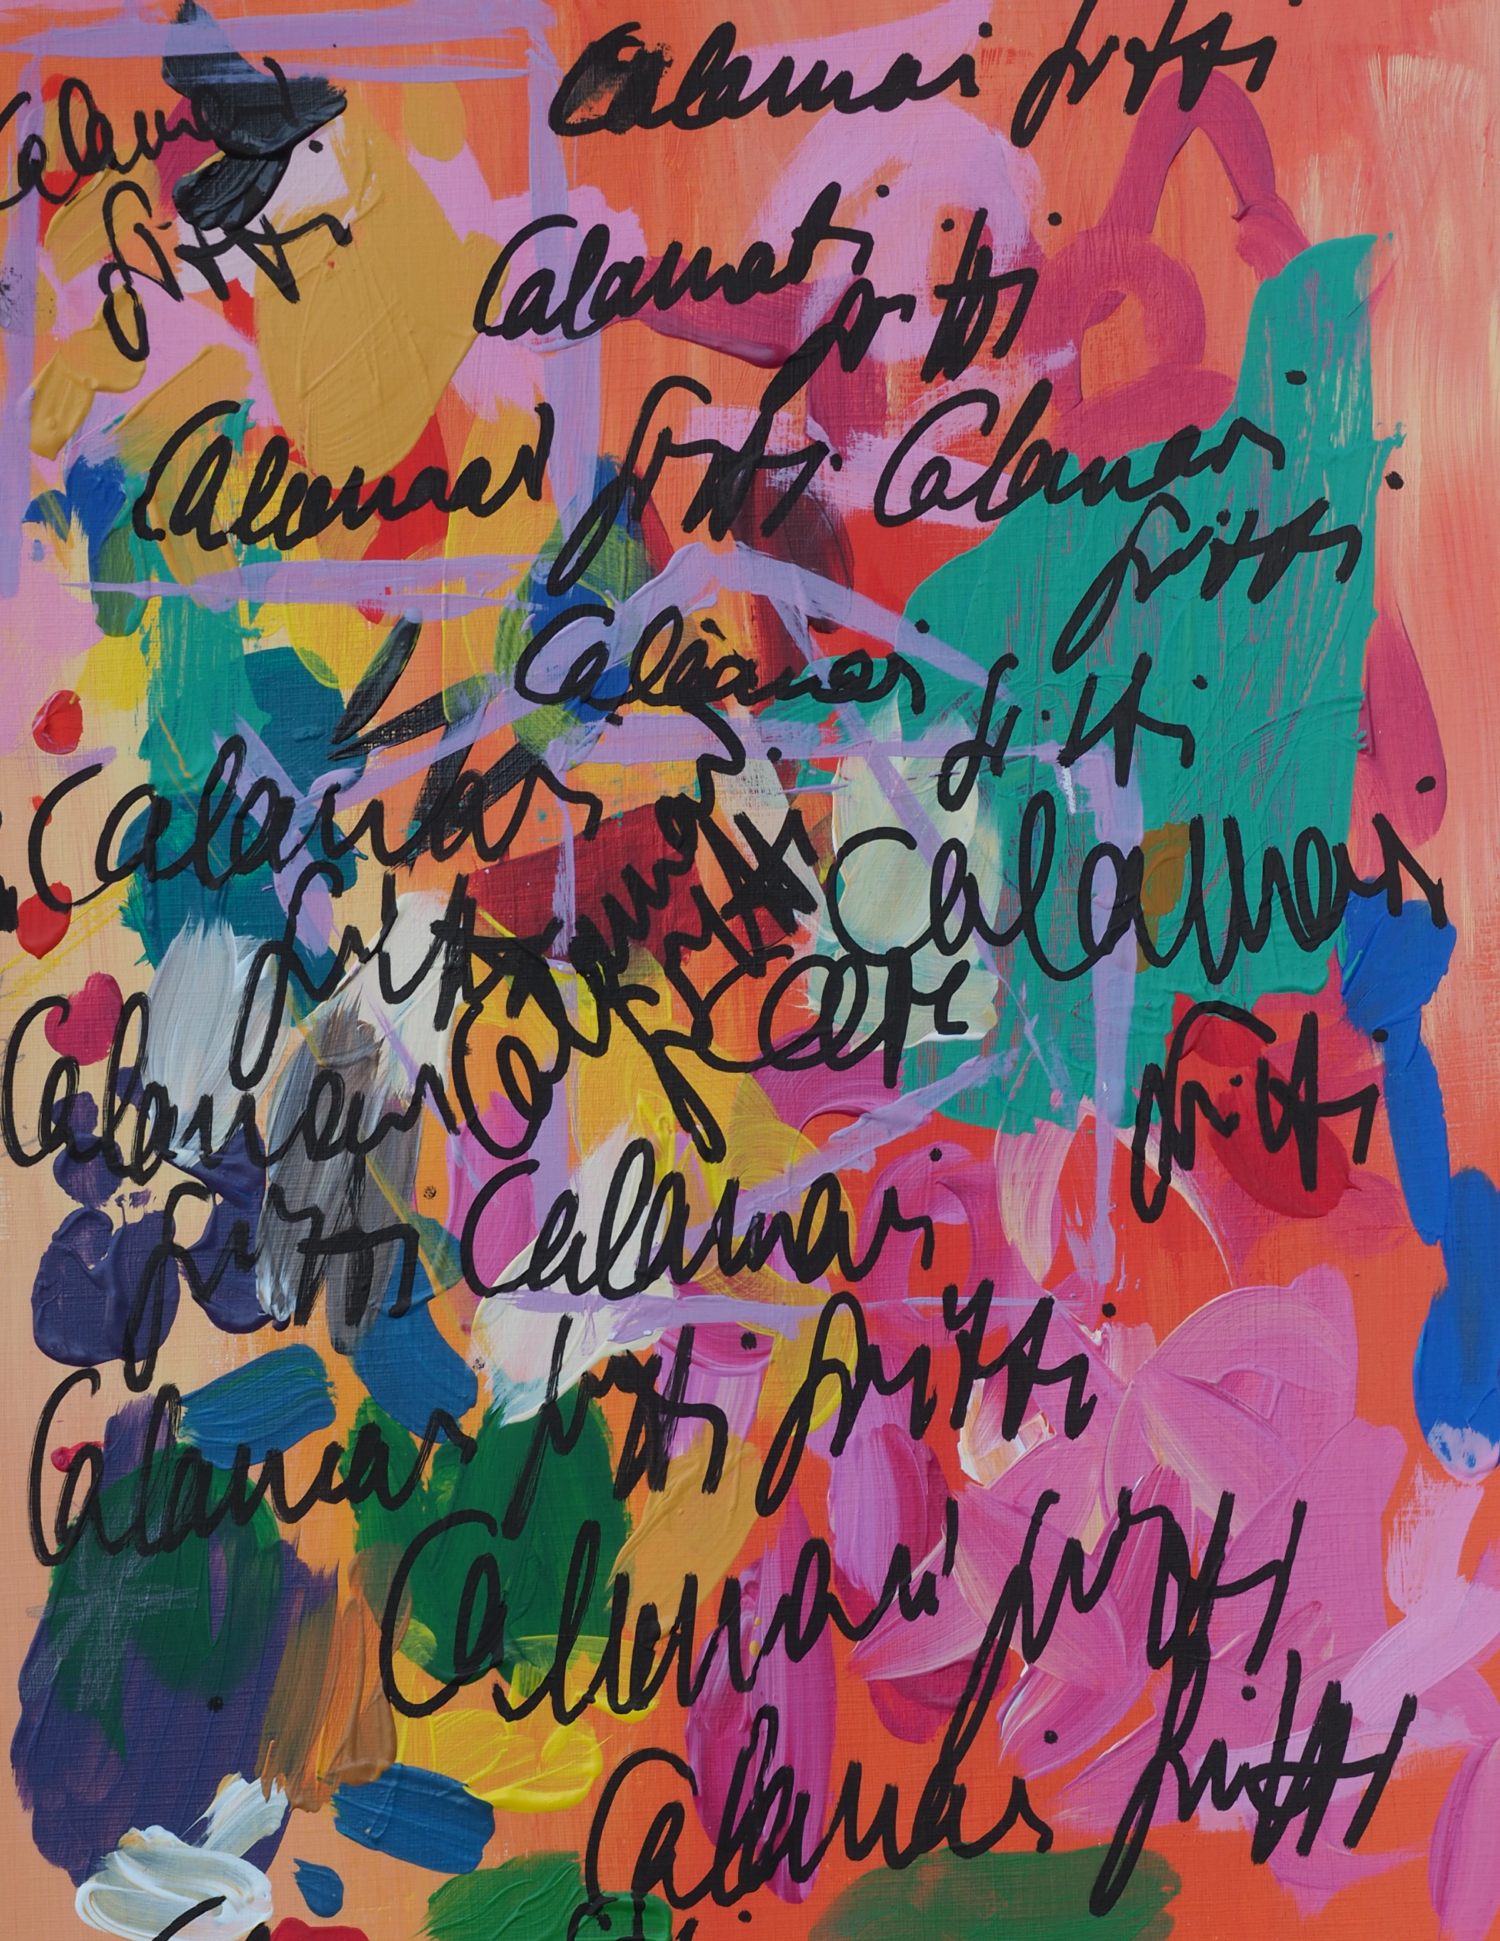 Calamari fritti
Calamari
fritti
Calamari fritti
Calamari fritti
Calamari
fritti
Calamari fritti
Calamari
fritti
Calamari
fritti
Calamari
fritti
Calamari
fritti
Calamari
fritti
Calamari fritti
fritti
Calamari fritti
Calamari fritti